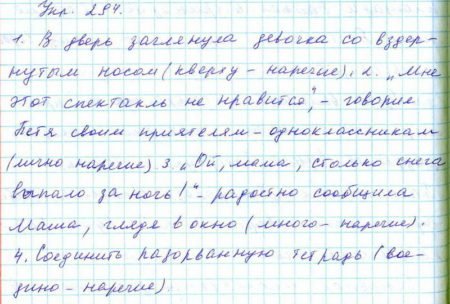 Упр. 294.
1. В дверь заглянула девочка со вздер-
нутым носом (кверху - наречие). 2. „Мне
этот спектакль не нравится", - говорил
Петя своим приятелям - одноклассникам
(лично наречие) 3. „Ой, мама, столько снега
выпало за ночь!" - радостно сообщила
Маша, глядя в окно (много - наречие).
4. Соединить разорванную тетрадь (вое-
дино - наречие).